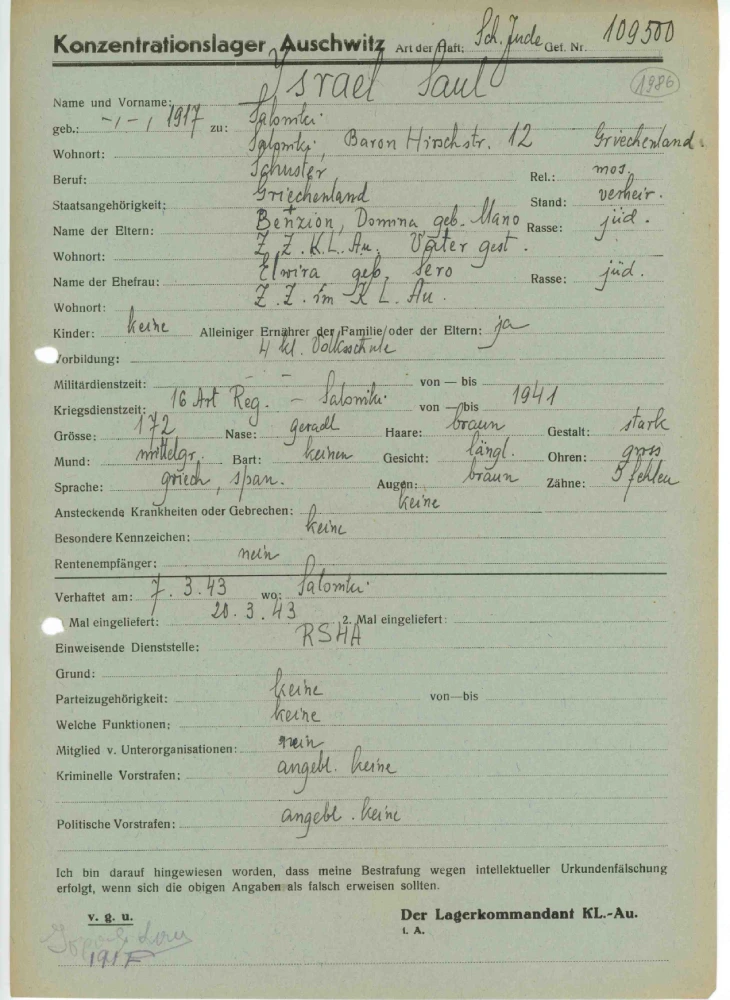 Konzentrationslager Auschwitz Art der Haft: Sch. Jude Gef. Nr. 109500
1986
Name und Vorname: Israel Saul
geb.: -,-, 1917 zu: Saloniki
Wohnort: Saloniki, Baron Hirschstr. 12 Griechenland
Beruf: Schuster Rel.: mos.
Staatsangehörigkeit: Griechenland Stand: verheir.
Name der Eltern: Benzion, Domina geb. Mano Rasse: jüd.
Wohnort: Z. Z. K.L. Au. Vater gest.
Name der Ehefrau: Elwira geb. Sero Rasse: jüd.
Wohnort: Z. Z. im K L. Au.
Kinder: keine Alleiniger Ernährer der Familie/oder der Eltern: ja
Vorbildung: 4 kl. Volksschule
Militärdienstzeit: — — von — bis
Kriegsdienstzeit: 16 Art Reg. – Saloniki von — bis 1941
Grösse: 172 Nase: geradl Haare: braun Gestalt: stark
Mund: mittelgr. Bart: keinen Gesicht: längl. Ohren: gross
Sprache: griech, span. Augen: braun Zähne: 5 fehlen
Ansteckende Krankheiten oder Gebrechen: keine
Besondere Kennzeichen: keine
Rentenempfänger: nein
Verhaftet am: 7. 3. 43 wo: Saloniki
Mal eingeliefert: 20. 3. 43 2. Mal eingeliefert:
Einweisende Dienststelle: RSHA
Grund:
Parteizugehörigkeit: keine von—bis
Welche Funktionen: keine
Mitglied v. Unterorganisationen: nein
Kriminelle Vorstrafen: angebl. keine
Politische Vorstrafen: angebl. keine
Ich bin darauf hingewiesen worden, dass meine Bestrafung wegen intellektueller Urkundenfälschung
erfolgt, wenn sich die obigen Angaben als falsch erweisen sollten.
v. g. u. Der Lagerkommandant KL.-Au.
I. A.
1917